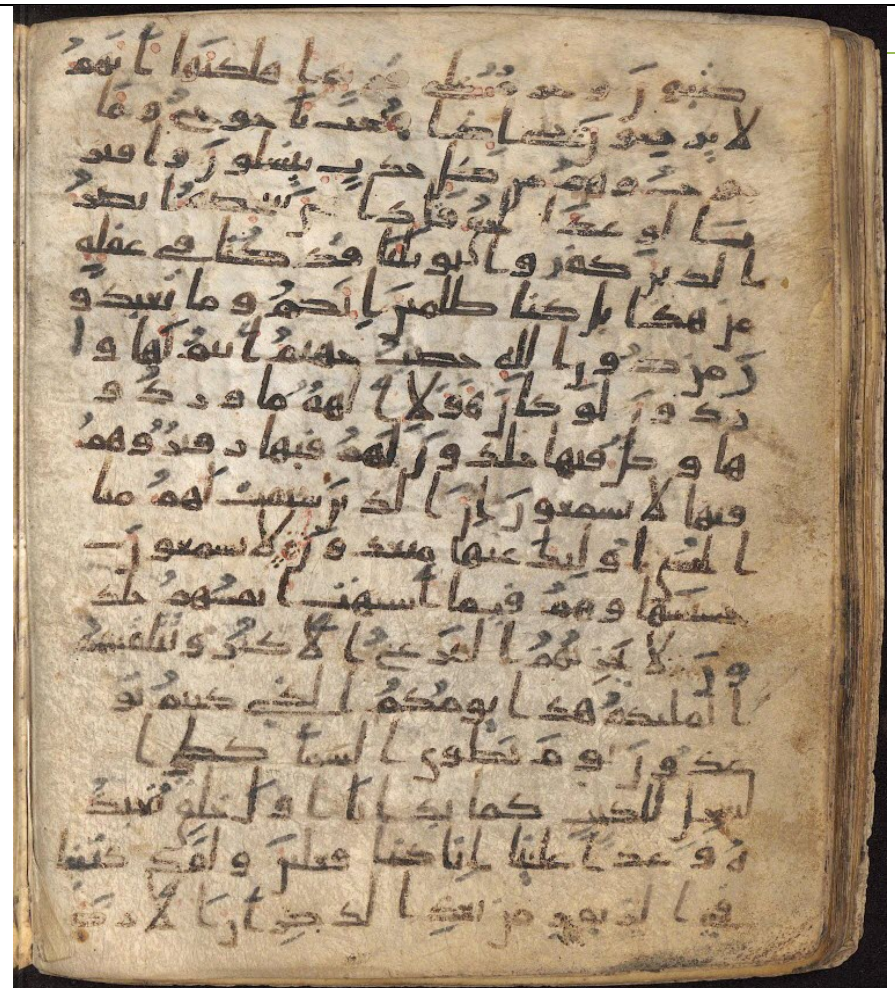 كتبون وحرم على قرية اهلكنها انهم
لا يرجعون حتى اذا فتحت ياجوج وما
جوج وهم من كل حدب ينسلون واقتر
ب الوعد الحق فاذا هي شخصة ابصر
الذين كفروا يويلنا قد كنا في غفلة
من هذا بل كنا ظلمين انكم وما تعبدو
ن من دون الله حصب جهنم انتم لها وا
ردون لو كان هولا الهة ما وردو
ها وكل فيها خلدون لهم فيها زفير وهم
فيها لا يسمعون ان الذين سبقت لهم منا
الحسنى اوليك عنها مبعدون لا يسمعون
حسيسها وهم فيما اشتهت انفسهم خلد
ون لا يحزنهم الفزع الاكبر وتتلقيهم
المليكة هذا يومكم الذي كنتم تو
عدون يوم نطوي السما كطي ا
لسجل للكتب كما بدانا اول خلق نعيد
ه وعدا علينا انا كنا فعلين ولقد كتبنا
في الزبور من بعد الذكر ان الارض